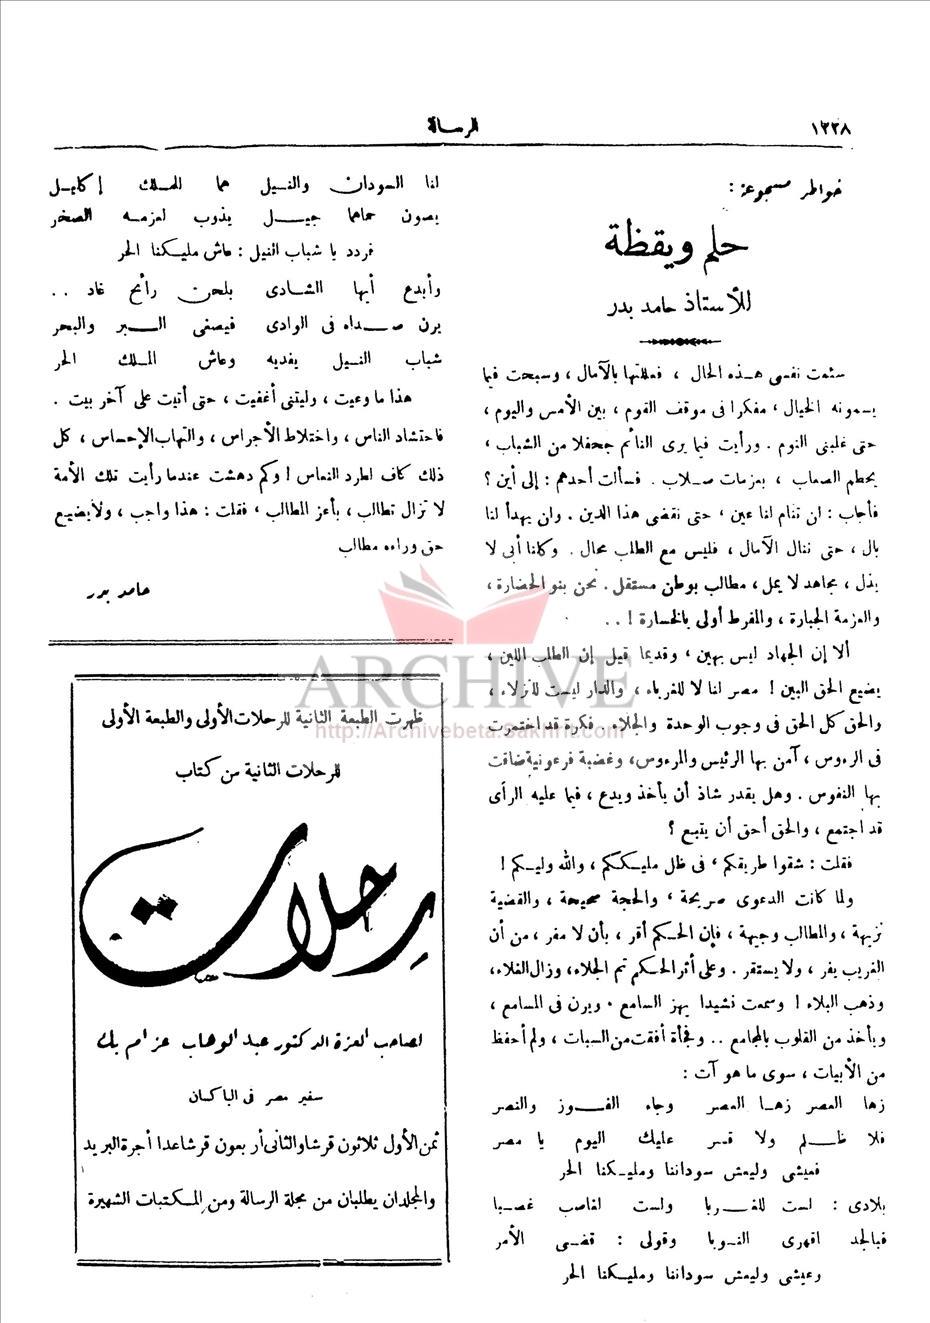 ١٢٣٨
الرسالة
خواطر مسجوعة :
حلم ويقظة
للأستاذ حامد بدر
سئمت نفسى هذه الحال ، فعللتها بالآمال ، وسبحت فيما
يسمونه الخيال ، مفكرا فى موقف القوم ، بين الأمس واليوم ،
حتى غلبنى النوم . ورأيت فيما يرى النائم جحفلا من الشباب ،
يحطم الصعاب ، بعزمات صلاب . فسألت أحدهم : إلى أين ؟
فأجاب : لن تنام لنا عين ، حتى نقضى هذا الدين . ولن يهدأ لنا
بال ، حتى ننال الآمال ، فليس مع الطلب محال . وكلنا أبى لا
يذل ، مجاهد لا يمل ، مطالب بوطن مستقل . نحن بنو الحضارة ،
والعزمة الجبارة ، والمفرط أولى بالخسارة ! . .
ألا إن الجهاد ليس بهين ، وقديما قيل إن الطلب اللين ،
يضيع الحق البين ! مصر لنا لا للغرباء ، والدار ليست للنزلاء ،
والحق كل الحق فى وجوب الوحدة والجلاء . فكرة قد اختمرت
فى الرءوس ، آمن بها الرئيس والمرءوس ، وغضبة فرعونية ضاقت
بها النفوس . وهل يقدر شاذ أن يأخذ ويدع ، فيما عليه الرأى
قد اجتمع ، والحق أحق أن يتبع ؟
فقلت : شقوا طريقكم ، فى ظل مليككم ، والله وليكم !
ولما كانت الدعوى صريحة ، والحجة صحيحة ، والقضية
نزيهة ، والمطالب وجيهة ، فإن الحكم أقر ، بأن لا مفر ، من أن
الغريب يفر ، ولا يستقر . وعلى أثر الحكم تم الجلاء ، وزال الغلاء ،
وذهب البلاء ! وسمعت نشيدا يهز السامع . ويرن فى المسامع ،
ويأخذ من القلوب بالمجامع . . وفجأة أفقت من السبات ، ولم أحفظ
من الأبيات ، سوى ما هو آت :
زها العصر زها العصر وجاء الفوز والنصر
فلا ظلم ولا قسر عليك اليوم يا مصر
فعيشى وليعش سوداننا ومليكنا الحر
بلادى : لست للغربا ولست لغاصب غصبا
فبالجد اقهرى النوبا وقولى : قضى الأمر
وعيشى وليعش سوداننا ومليكنا الحر
لنا السودان والنيل هما للملك إكليل
يصون حماهما جيل يذوب لعزمه الصخر
فردد يا شباب النيل : عاش مليكنا الحر
وأبدع أيها الشادى بلحن رائح غاد . .
يرن صداه فى الوادى فيصغى البر والبحر
شباب النيل يفديه وعاش الملك الحر
هذا ما وعيت ، وليتنى أغفيت ، حتى أتيت على آخر بيت .
فاحتشاد الناس ، واختلاط الأجراس ، والتهاب الإحساس ، كل
ذلك كاف لطرد النعاس ! وكم دهشت عندما رأيت تلك الأمة
لا تزال تطالب ، بأعز المطالب ، فقلت : هذا واجب ، ولا يضيع
حق وراءه مطالب
حامد بدر
ظهرت الطبعة الثانية للرحلات الأولى والطبعة الأولى
للرحلات الثانية من كتاب
رحلات
لصاحب العزة الدكتور عبد الوهاب عزام بك
سفير مصر فى الباكستان
ثمن الأول ثلاثون قرشا والثانى أربعون قرشا عدا أجرة البريد
والمجلدان يطلبان من مجلة الرسالة ومن المكتبات الشهيرة
ARCHIVE
http://Archivebeta.Sakhrit.com